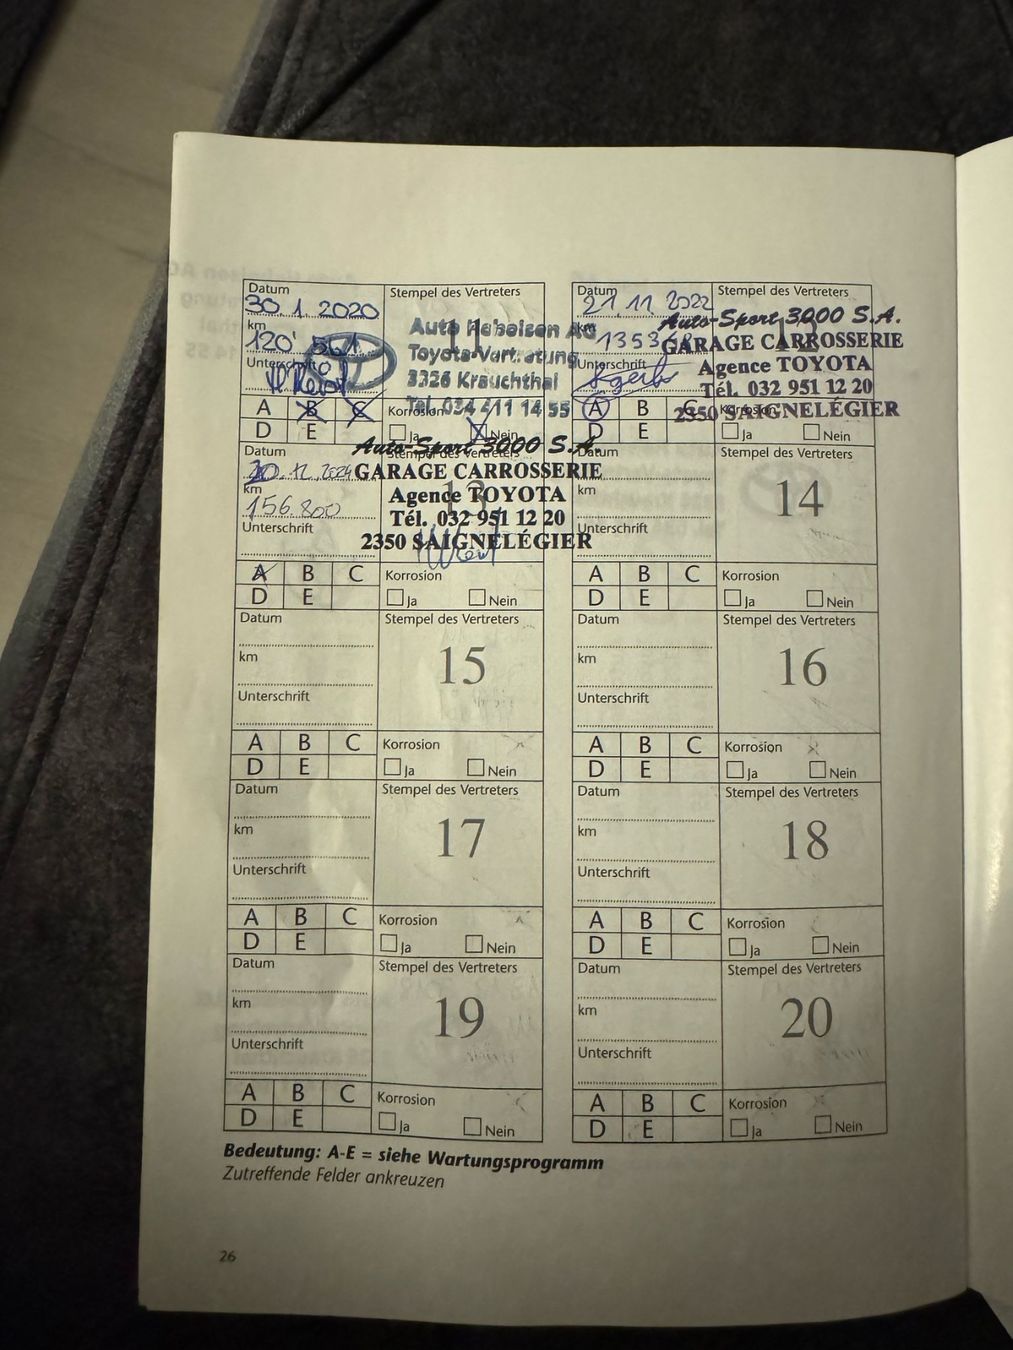 Datum
30.1.2020
km
120'561
Unterschrift
Stempel des Vertreters
11
Auto Hebeisen AG
Toyota-Vertretung
3326 Krauchthal
Tel. 034 411 14 55
A B C
D E
Korrosion
Ja Nein
Datum
21.11.2022
km
1353
Unterschrift
Stempel des Vertreters
12
Auto-Sport 3000 S.A.
GARAGE CARROSSERIE
Agence TOYOTA
Tél. 032 951 12 20
2350 SAIGNELÉGIER
A B C
D E
Korrosion
Ja Nein
Datum
20.12.2024
km
156.800
Unterschrift
Stempel des Vertreters
13
Auto-Sport 3000 S.A.
GARAGE CARROSSERIE
Agence TOYOTA
Tél. 032 951 12 20
2350 SAIGNELÉGIER
A B C
D E
Korrosion
Ja Nein
Datum
km
Unterschrift
Stempel des Vertreters
14
A B C
D E
Korrosion
Ja Nein
Datum
km
Unterschrift
Stempel des Vertreters
15
A B C
D E
Korrosion
Ja Nein
Datum
km
Unterschrift
Stempel des Vertreters
16
A B C
D E
Korrosion
Ja Nein
Datum
km
Unterschrift
Stempel des Vertreters
17
A B C
D E
Korrosion
Ja Nein
Datum
km
Unterschrift
Stempel des Vertreters
18
A B C
D E
Korrosion
Ja Nein
Datum
km
Unterschrift
Stempel des Vertreters
19
A B C
D E
Korrosion
Ja Nein
Datum
km
Unterschrift
Stempel des Vertreters
20
A B C
D E
Korrosion
Ja Nein
Bedeutung: A-E = siehe Wartungsprogramm
Zutreffende Felder ankreuzen
26